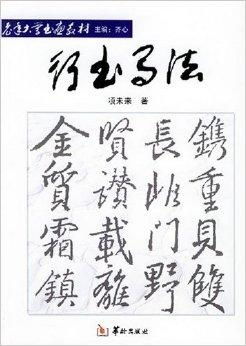 老年大学书画教材 主编：齐心
行书写法
项未来 著
鐫重貝雙
長門野
賢讚載離
金質霜鎮
华龄出版社